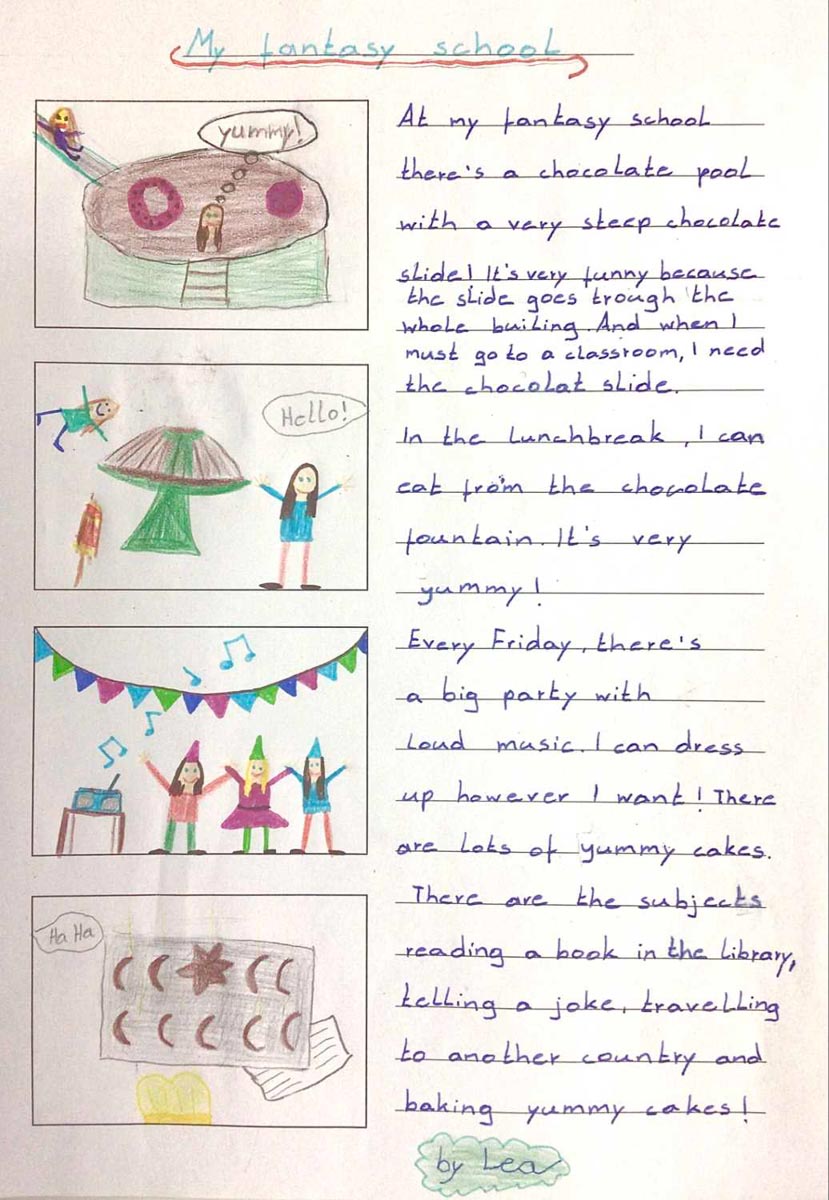 My fantasy school
yummy!
At my fantasy school
there's a chocolate pool
with a very steep chocolate
slide! It's very funny because
the slide goes trough the
whole builing. And when I
must go to a classroom, I need
the chocolat slide.
Hello!
In the lunchbreak, I can
eat from the chocolate
fountain. It's very
yummy!
Every Friday, there's
a big party with
loud music. I can dress
up however I want! There
are lots of yummy cakes.
Ha Ha
There are the subjects
reading a book in the library,
telling a joke, travelling
to another country and
baking yummy cakes!
by Lea